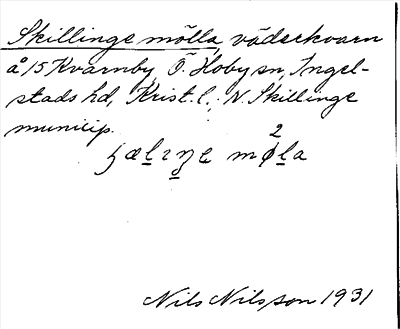 Skillinge mölla, väderkvarn
å 15 Kvarnby, Ö. Hoby sn, Ingel-
stads hd, Krist. l., N. Skillinge
municip.
2
møla
Nils Nilsson 1931